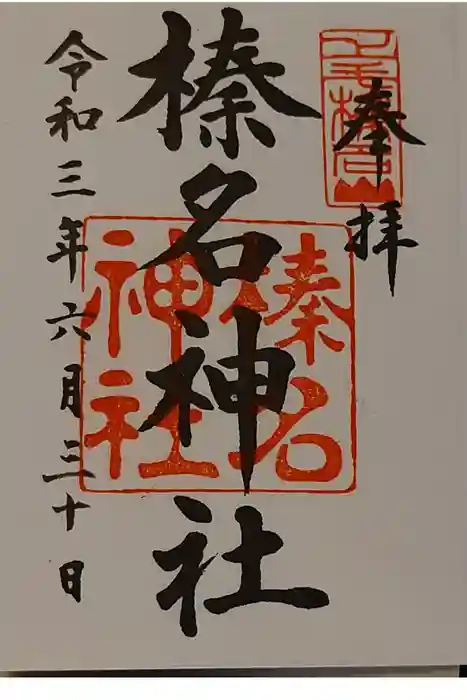 奉拝
上毛榛名
榛名神社
榛名
神社
令和三年六月三十日